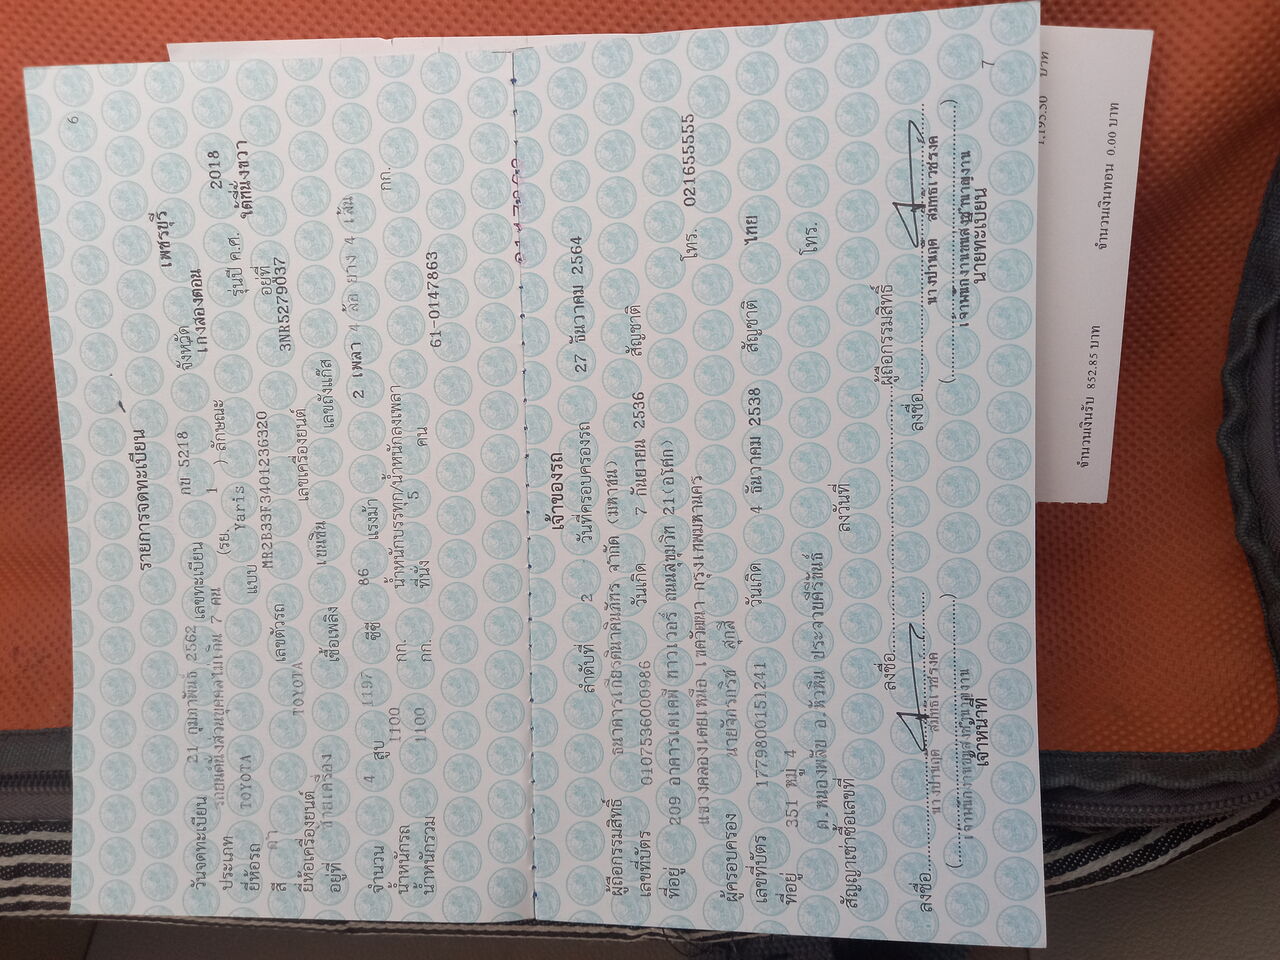 6
รายการจดทะเบียน
วันจดทะเบียน 21 กุมภาพันธ์ 2562 เลขทะเบียน กข 5218 จังหวัด เพชรบุรี
ประเภท รถยนต์นั่งส่วนบุคคลไม่เกิน 7 คน (รย. 1 ) ลักษณะ เก๋งสองตอน
ยี่ห้อรถ TOYOTA แบบ Yaris รุ่นปี ค.ศ. 2018
สี ดำ เลขตัวรถ MR2B33F3401236320 อยู่ที่ ใต้ที่นั่งขวา
ยี่ห้อเครื่องยนต์ TOYOTA เลขเครื่องยนต์ 3NR5279037
อยู่ที่ ท้ายเครื่อง เชื้อเพลิง เบนซิน เลขถังแก๊ส
จำนวน 4 สูบ 1197 ซีซี 86 แรงม้า 2 เพลา 4 ล้อ ยาง 4 เส้น
น้ำหนักรถ 1100 กก. น้ำหนักบรรทุก/น้ำหนักลงเพลา กก.
น้ำหนักรวม 1100 กก. ที่นั่ง 5 คน 61-0147863
เจ้าของรถ
ลำดับที่ 2 วันที่ครอบครองรถ 27 ธันวาคม 2564
ผู้ถือกรรมสิทธิ์ ธนาคารเกียรตินาคินภัทร จำกัด (มหาชน)
เลขที่บัตร 0107536000986 วันเกิด 7 กันยายน 2536 สัญชาติ
ที่อยู่ 209 อาคารเคเคพี ทาวเวอร์ ถนนสุขุมวิท 21(อโศก)
แขวงคลองเตยเหนือ เขตวัฒนา กรุงเทพมหานคร โทร. 021655555
ผู้ครอบครอง นายจักรกริช สุกสี
เลขที่บัตร 1779800151241 วันเกิด 4 ธันวาคม 2538 สัญชาติ ไทย
ที่อยู่ 351 หมู่ 4
ต.หนองพลับ อ.หัวหิน ประจวบคีรีขันธ์ โทร.
สัญญาเช่าซื้อเลขที่ ลงวันที่
ลงชื่อ ผู้ถือกรรมสิทธิ์
ลงชื่อ ลงชื่อ
เจ้าหน้าที่ นายทะเบียน
7
1,195.50 บาท
จำนวนเงินรับ 852.85 บาท จำนวนเงินทอน 0.00 บาท